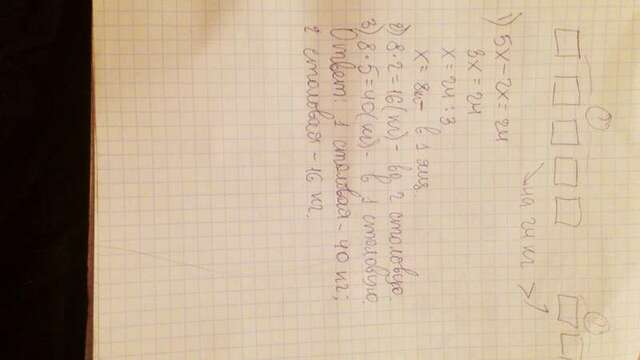 на 24 кг >
1) 5х-2х=24
3х=24
х=24:3
х=8кг- в 1 ящ.
2) 8·2=16(кг)- во 2 столовую.
3) 8·5=40(кг)- в 1 столовую.
Ответ: 1 столовая-40 кг;
2 столовая-16 кг.